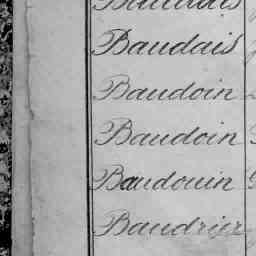 Baudais
Baudoin
Baudoin
Baudouin
Baudrier